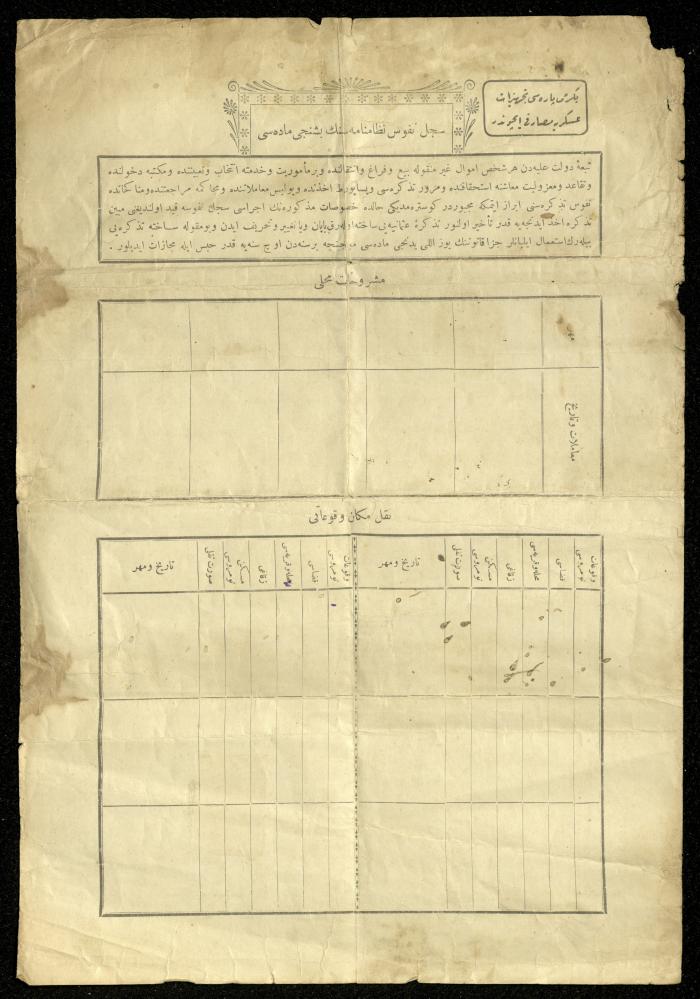 یگرمی پاره سی تجهیزات
عسکریه مصارفی ایچوندر
سجل نفوس نظامنامه سنك بشنجی ماده سی
تبعهٔ دولت علیه دن هر شخص اموال غیر منقوله بیع و فراغ و انتقالنده و بر مأموریت و خدمته انتخاب و تعییننده و مکتبه دخولنده
و تقاعد و معزولیت معاشنه استحقاقنده و مرور تذکره سی و پساپورط اخذنده و پولیس معاملاتنده و محاکمه مراجعتنده و مناکحاتنده
نفوس تذکره سنی ابراز ایتمکه مجبوردر کوستره مدیکی حالده خصوصات مذکوره نك اجراسی سجل نفوسه قید اولندیغنی مبین
تذکره اخذ ایدنجه یه قدر تأخیر اولنور تذکرهٔ عثمانیه یی ساخته اوله رق یاپان ویا تغییر و تحریف ایدن و بو مقوله ساخته تذکره یی
بیله رك استعمال ایلیانلر جزا قانوننك یوز اللی یدنجی ماده سی موجبنجه بر سنه دن اوچ سنه یه قدر حبس ایله مجازات ایدیلور .
مشروحات محلی
مهر
معاملات و تاریخ
نقل مکان وقوعاتی
وقوعات نومروسی
قضاسی
محله و قریه سی
زقاغی
مسکن نومروسی
صورت نقلی
تاریخ و مهر
وقوعات نومروسی
قضاسی
محله و قریه سی
زقاغی
مسکن نومروسی
صورت نقلی
تاریخ و مهر